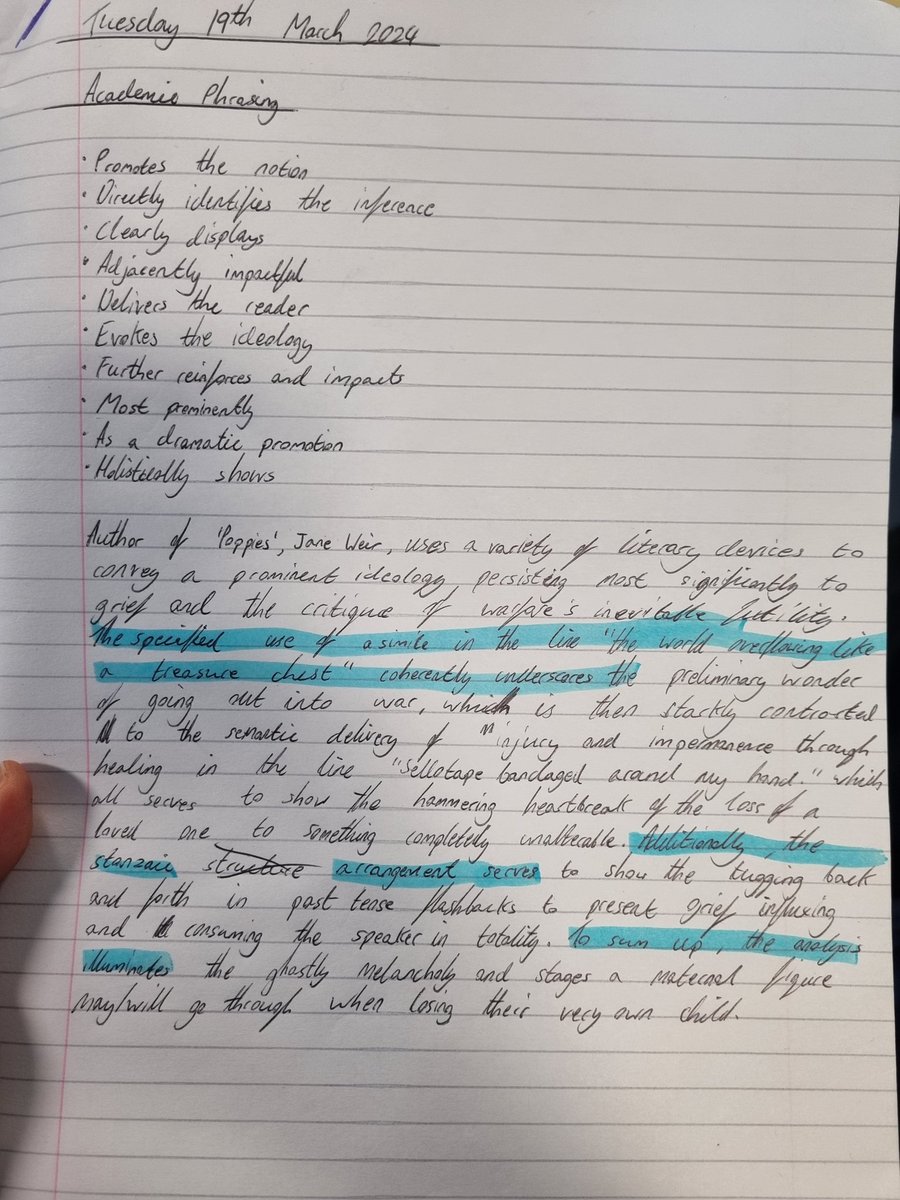 Tuesday 19th March 2024
Academic Phrasing
· Promotes the notion
· Directly identifies the inference
· Clearly displays
· Adjacently impactful
· Delivers the reader
· Evokes the ideology
· Further reinforces and impacts
· Most prominently
· As a dramatic promotion
· Holistically shows
Author of 'Poppies', Jane Weir, uses a variety of literary devices to
convey a prominent ideology, persisting most significantly to
grief and the critique of warfare's inevitable futility.
The specified use of a simile in the line "the world overflowing like
a treasure chest" coherently underscores the preliminary wonder
of going out into war, which is then starkly contrasted
to the semantic delivery of injury and impermanence through
healing in the line "Sellotape bandaged around my hand." which
all serves to show the hammering heartbreak of the loss of a
loved one to something completely unalterable. Additionally, the
stanzaic structure arrangement serves to show the tugging back
and forth in past tense flashbacks to present grief influxing
and consuming the speaker in totality. To sum up, the analysis
illuminates the ghostly melancholy and stages a maternal figure
may/will go through when losing their very own child.